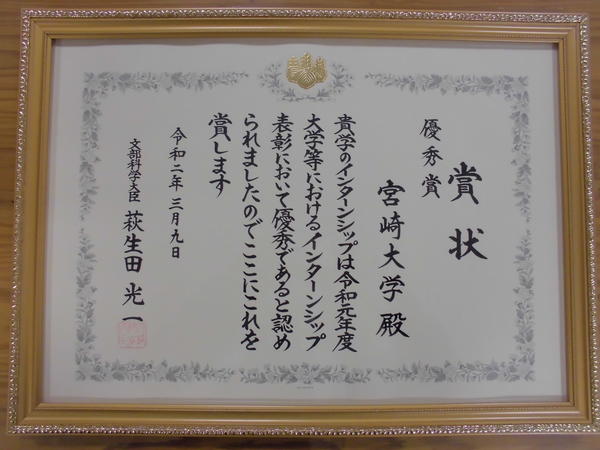 賞状
優秀賞
宮崎大学殿
貴学のインターンシップは令和元年度
大学等におけるインターンシップ
表彰において優秀であると認め
られましたのでここにこれを
賞します
令和二年三月九日
文部科学大臣 萩生田光一